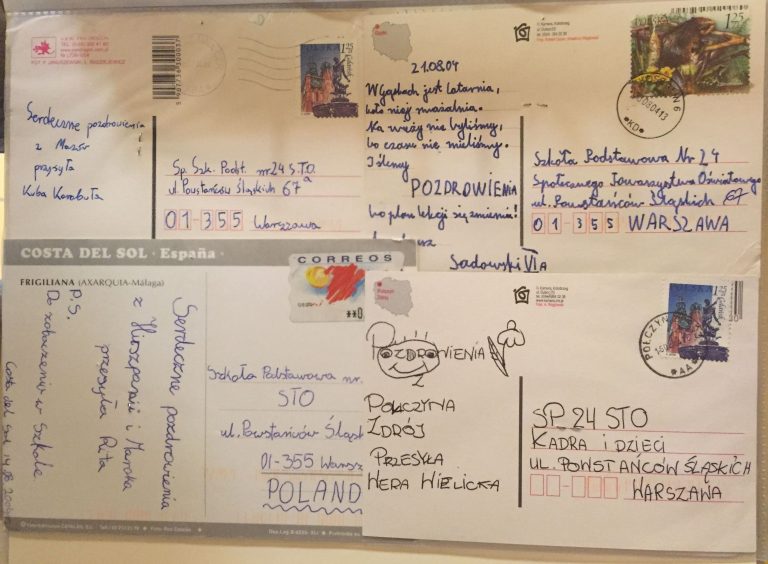 Serdeczne pozdrowienia
z Mazur
przysyła
Kuba Karabuła
5901716300037
POLSKA 1,25
Gdańsk
Sp. Szk. Podst. nr 24 S.T.O.
ul. Powstańców Śląskich 67a
01-355 Warszawa
21.08.04
W Gąskach jest latarnia,
koło niej smażalnia.
Na wieży nie byliśmy,
bo czasu nie mieliśmy.
I ślemy
POZDROWIENIA
bo plan lekcji się zmienia!
Sadowski VIa
1,25
Szkoła Podstawowa Nr 24
Społecznego Towarzystwa Oświatowego
ul. Powstańców Śląskich 67
01355 WARSZAWA
COSTA DEL SOL · España ·
FRIGILIANA (AXARQUIA-Málaga)
CORREOS
Serdeczne pozdrowienia
z Hiszpanii i Maroka
przesyła Rita
P.S.
Do zobaczenia w Szkole
Costa del Sol 14.08
Szkoła Podstawowa nr.
STO
ul. Powstańców Śląsk
01-355 Warsz
POLAND
POZDROWIENIA
Z
POŁCZYNA
ZDRÓJ
PRZESYŁA
WERA WIELICKA
POŁCZYN
Gdańsk
SP 24 STO
KADRA I DZIECI
UL. POWSTAŃCÓW ŚLĄSKICH
WARSZAWA